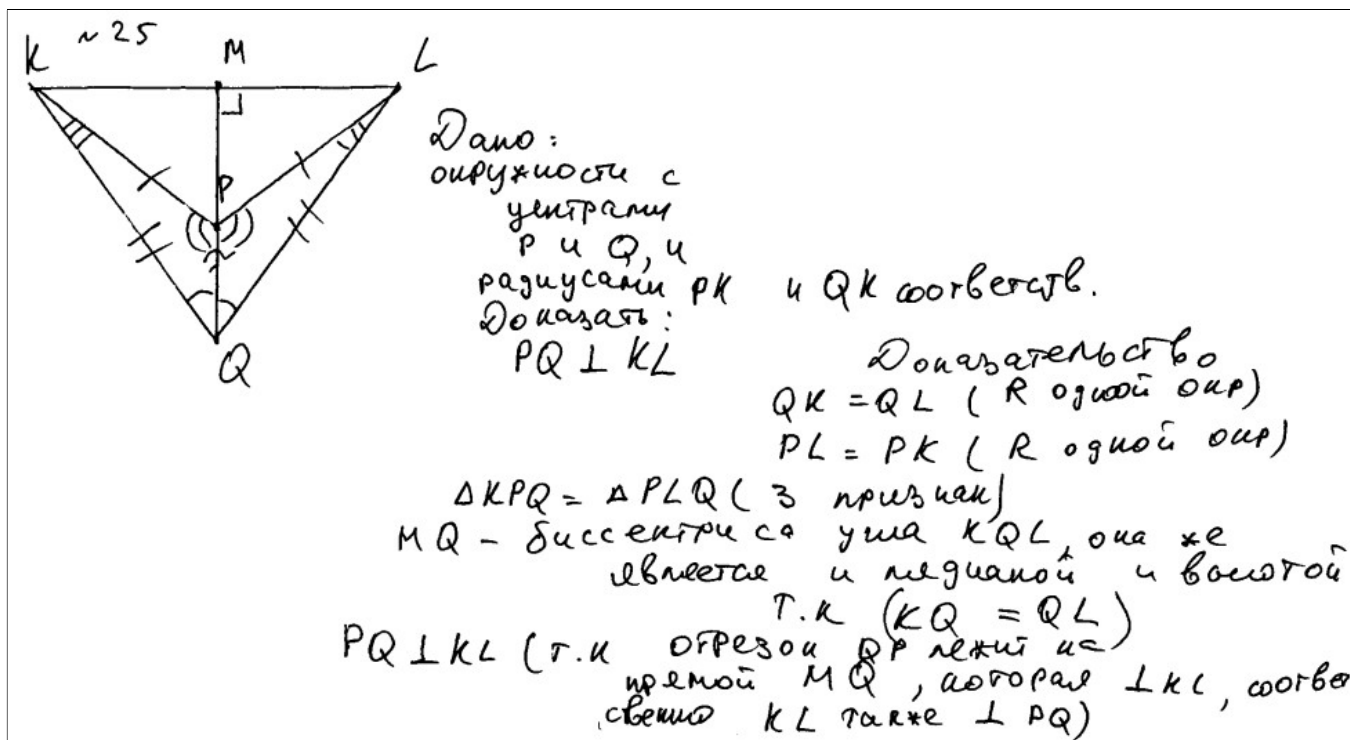 № 25
K M L
P
Q
Дано:
окружности с
центрами
P и Q, и
радиусами PK и QK соответств.
Доказать:
PQ ⊥ KL
Доказательство
QK = QL ( R одной окр)
PL = PK ( R одной окр)
ΔKPQ = ΔPLQ ( 3 признак)
MQ - биссектриса угла KQL, она же
является и медианой и высотой
т.к (KQ = QL)
PQ ⊥ KL (т.к отрезок QP лежит на
прямой MQ, которая ⊥ KL, соответ
ственно KL также ⊥ PQ)